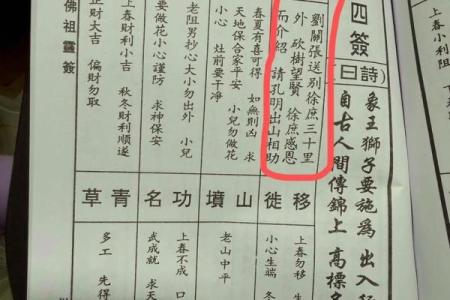 四簽
日詩
象王獅子要施為 出入
自古人間傳錦上 高標
劉關張送別徐庶三十里
外 砍樹望賢 徐庶感恩
而介紹 請孔明出山相助
春夏有喜可得 如無則凶 求
天地保合家平安 小兒勿做花
小心 灶前要干淨
老阻男抄心大小勿出外 小兒
要做花小心謹防 求神保安
上春財利小吉 秋冬財利順遂
正財大吉 偏財勿取
佛祖靈簽
移徙
山墳
功名
青草
上春勿移
小心生端
老山中平
上春不成 口
武成就 求天
多工 先得